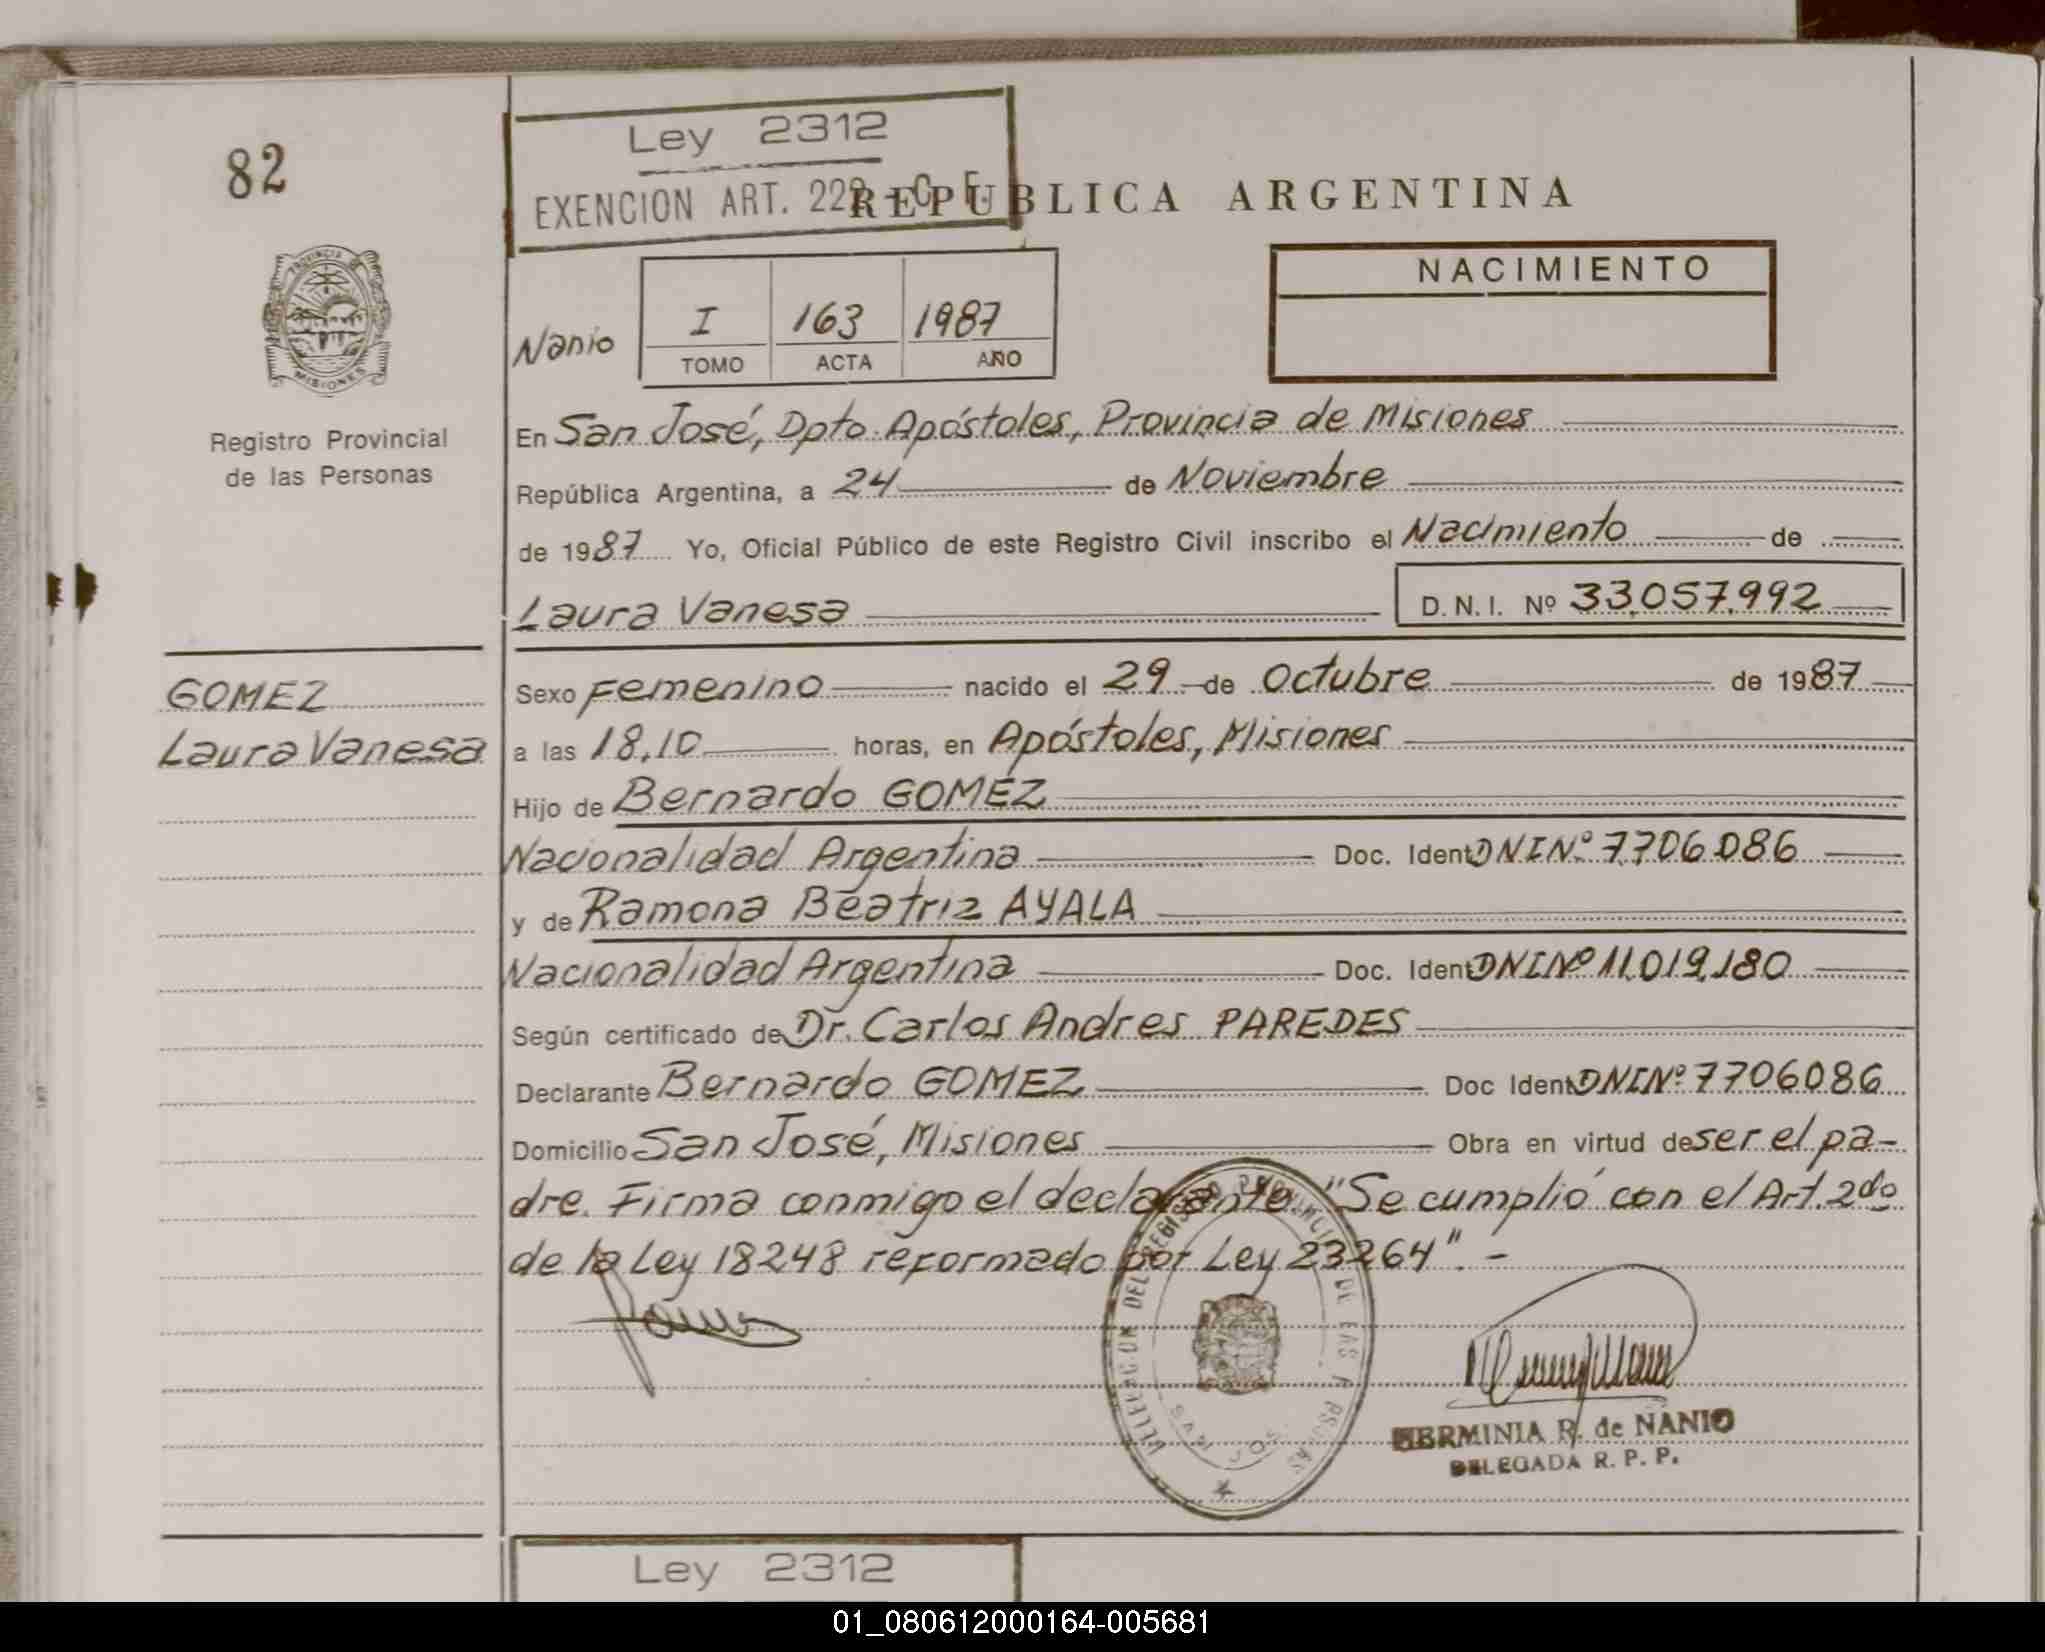 82
Ley 2312
EXENCION ART. 222 - C F.
REPUBLICA ARGENTINA
PROVINCIA DE
MISIONES
Registro Provincial
de las Personas
NACIMIENTO
Nanio
I 163 1987
TOMO ACTA AÑO
En San José, Dpto. Apóstoles, Provincia de Misiones
República Argentina, a 24 de Noviembre
de 1987 Yo, Oficial Público de este Registro Civil inscribo el Nacimiento de
Laura Vanesa D.N.I. Nº 33.057.992
GOMEZ
Laura Vanesa
Sexo Femenino nacido el 29 de Octubre de 1987
a las 18,10 horas, en Apóstoles, Misiones
Hijo de Bernardo GOMEZ
Nacionalidad Argentina Doc. Ident DNI Nº 7.706.086
y de Ramona Beatriz AYALA
Nacionalidad Argentina Doc. Ident DNI Nº 11.019.180
Según certificado de Dr. Carlos Andres PAREDES
Declarante Bernardo GOMEZ Doc Ident DNI Nº 7706086
Domicilio San José, Misiones Obra en virtud de ser el pa-
dre. Firma conmigo el declarante. "Se cumplió con el Art. 2do
de la Ley 18248 reformado por Ley 23264". -
DELEGACION DEL REGISTRO PROVINCIAL DE LAS PERSONAS
SAN JOSE
HERMINIA R. de NANIO
DELEGADA R. P. P.
Ley 2312
01_080612000164-005681